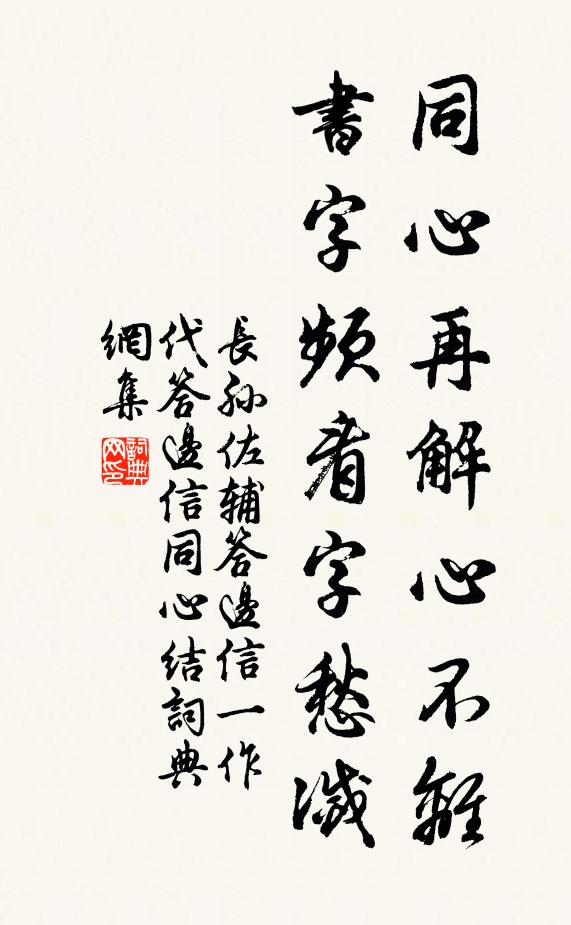 同心再解心不離
書字頻看字愁滅
長孫佐輔答邊信一作
代答邊信同心結詞典
網集
詞典網印